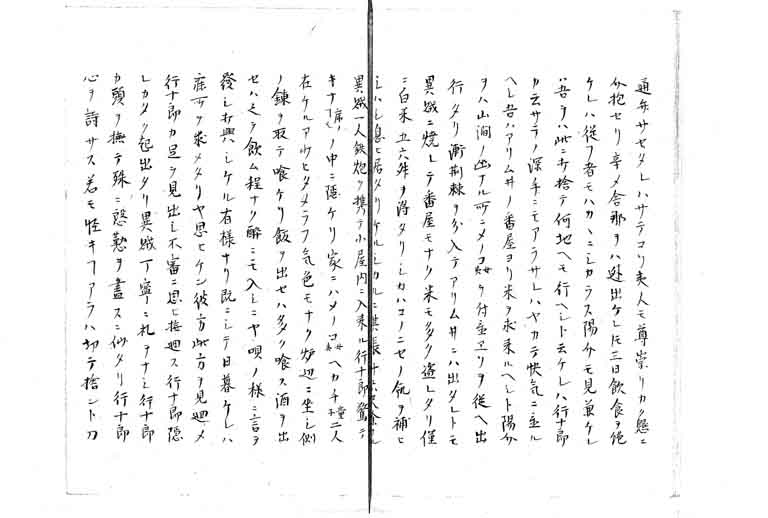 通弁サセタレハサテコソ夷人モ尊崇シカク懇ニ
介抱セリ辛メ舎那ヲハ遁出ケレ𪜈三日飲食ヲ絶
ケレハ従フ者モハカ〳〵シカラス陽介モ見兼ケレ
ハ吾ヲハ此ニ打捨テ何地ヘモ行ヘシト云ケレハ行十郎
カ云サラハ深手ニモアラサレハヤカテ快気ニ至ル
ヘシ吾ハアリムイノ番屋ヨリ米ヲ求来ルヘシト陽介
ヲハ山澗ノ凹ナル所ニメノコヲ付置ヱリヲ従ヘ出
行タリ漸荊棘ヲ分入テアリムイニハ出タレトモ
異賊ニ焼レテ番屋モナク米モ多ク盗レタリ僅
ニ白米五六舛ヲ得タリシカハコノニセノ飢ヲ補ヒ
シハシ息ヒ居タリケルシカルニ
異賊一人鉄炮ヲ携テ小屋内ニ入来ル行十郎驚テ
キナノ中ニ隠ケリ家ニハメノコヘカチ二人
在ケルアヤヒタメラフ気色モナク炉辺ニ坐シ側
ノ鰊ヲ取テ喰ケリ飯ヲ出セハ多ク喰ス酒ヲ出
セハミテ飲ム程ナク酔ニモ入シニヤ唄ノ様ニ言ヲ
發シ打興シケル有様ナリ既ニシテ日暮ケレハ
座所ヲ求メタリヤ思ヒケン彼方此方ヲ見廻メ
行十郎カ足ヲ見出シ不審ニ思ヒ捲廻ス行十郎隠
レカタク起出タリ異賊丁寧ニ礼ヲナシ行十郎
カ頭ヲ撫テ殊ニ慇懃ヲ盡スニ似タリ行十郎
心ヲ許サス若モ怪キフアラハ切テ捨ント刀